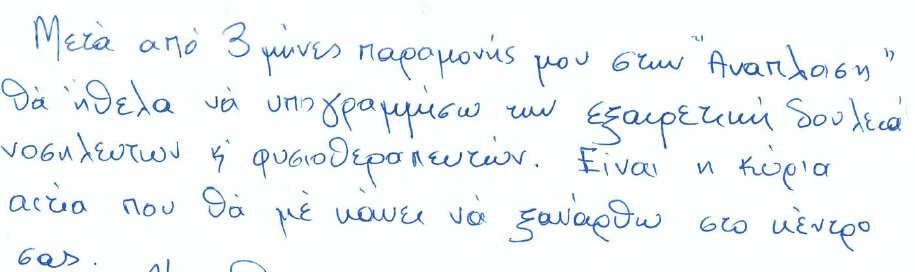 Μετὰ από 3 μήνες παραμονής μου στην "Αναπλαση"
θὰ ήθελα νὰ υπογραμμήσω την εξαιρετική δουλειά
νοσηλευτων κ' φυσιοθεραπευτών. Είναι η κύρια
αιτία που θὰ μὲ κάνει νὰ ξανάρθω στο κέντρο
σας.